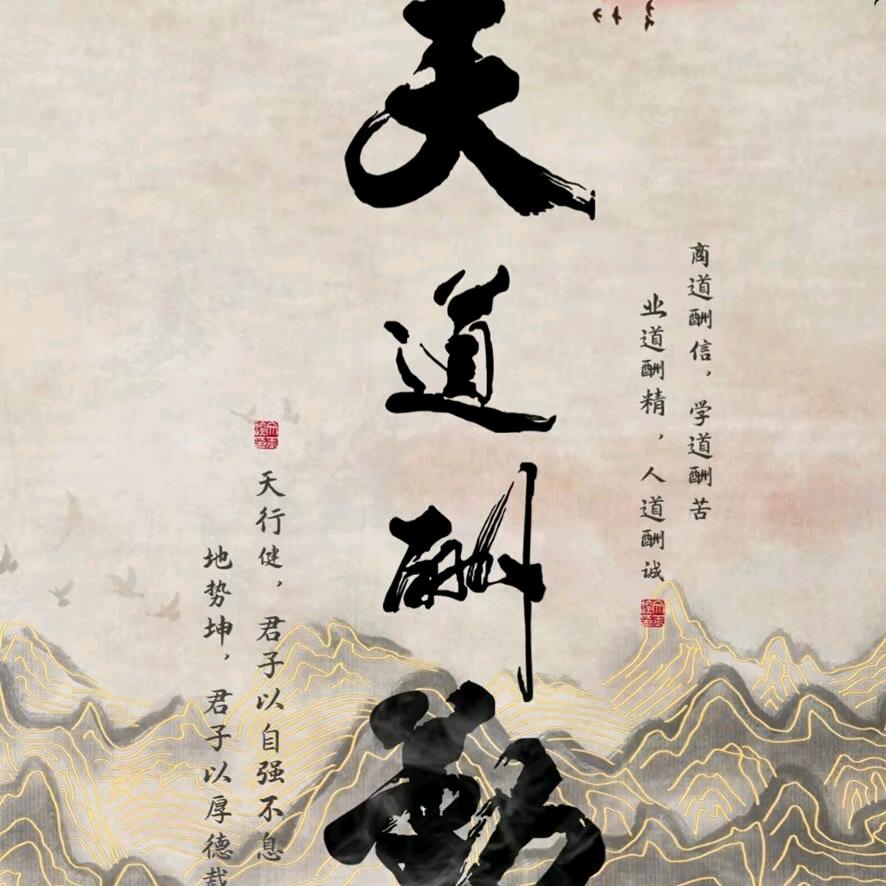 天道酬勤
商道酬信，学道酬苦
业道酬精，人道酬诚
天行健，君子以自强不息
地势坤，君子以厚德载